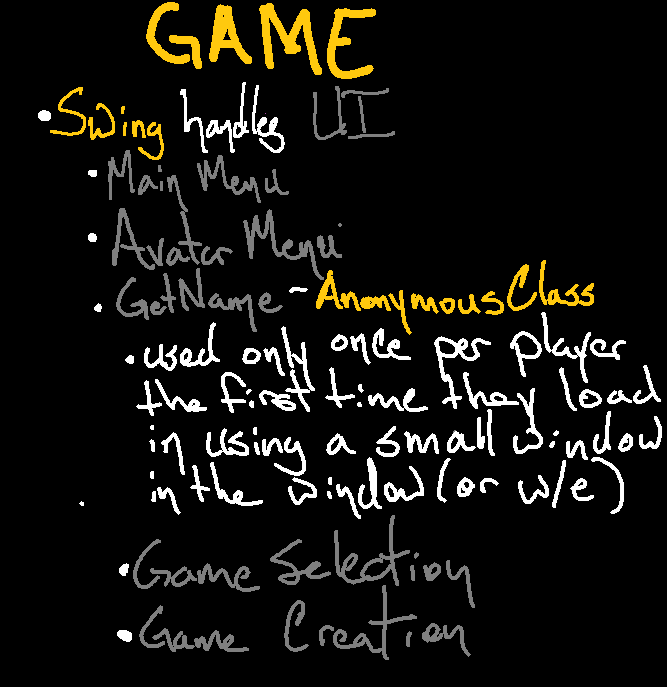 GAME
• Swing handles UI
• Main Menu
• Avatar Menu
• GetName - AnonymousClass
• used only once per player
the first time they load
in using a small window
in the window (or w/e)
• Game Selection
• Game Creation